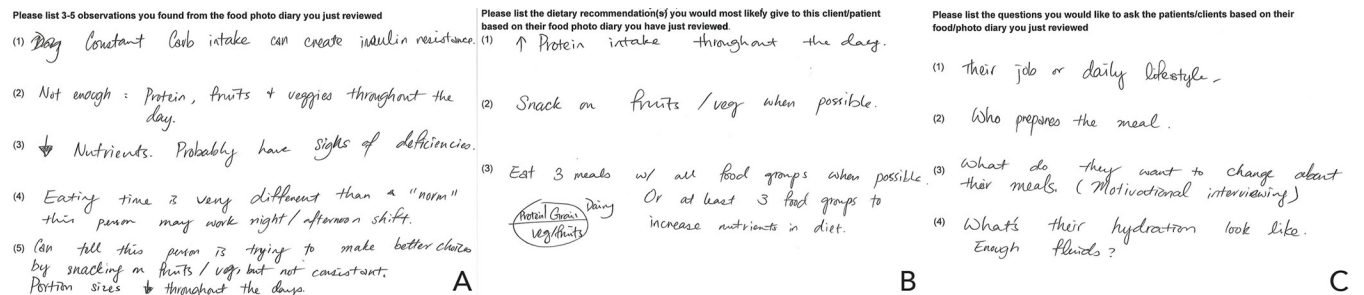 Please list 3-5 observations you found from the food photo diary you just reviewed
(1) Constant Carb intake can create insulin resistance.
(2) Not enough : Protein, fruits + veggies throughout the
day.
(3) ↓ Nutrients. Probably have signs of deficiencies.
(4) Eating time is very different than a "norm"
this person may work night/afternoon shift.
(5) Can tell this person is trying to make better choices
by snacking on fruits/veg, but not consistant.
Portion sizes ↓ throughout the days.
A
Please list the dietary recommendation(s) you would most likely give to this client/patient
based on their food photo diary you have just reviewed.
(1) ↑ Protein intake throughout the day.
(2) Snack on fruits/veg when possible.
(3) Eat 3 meals w/ all food groups when possible.
Or at least 3 food groups to
increase nutrients in diet.
Protein Grain Dairy
veg/fruits
B
Please list the questions you would like to ask the patients/clients based on their
food/photo diary you just reviewed
(1) Their job or daily lifestyle.
(2) Who prepares the meal.
(3) What do they want to change about
their meals. (Motivational interviewing)
(4) What's their hydration look like.
Enough fluids?
C